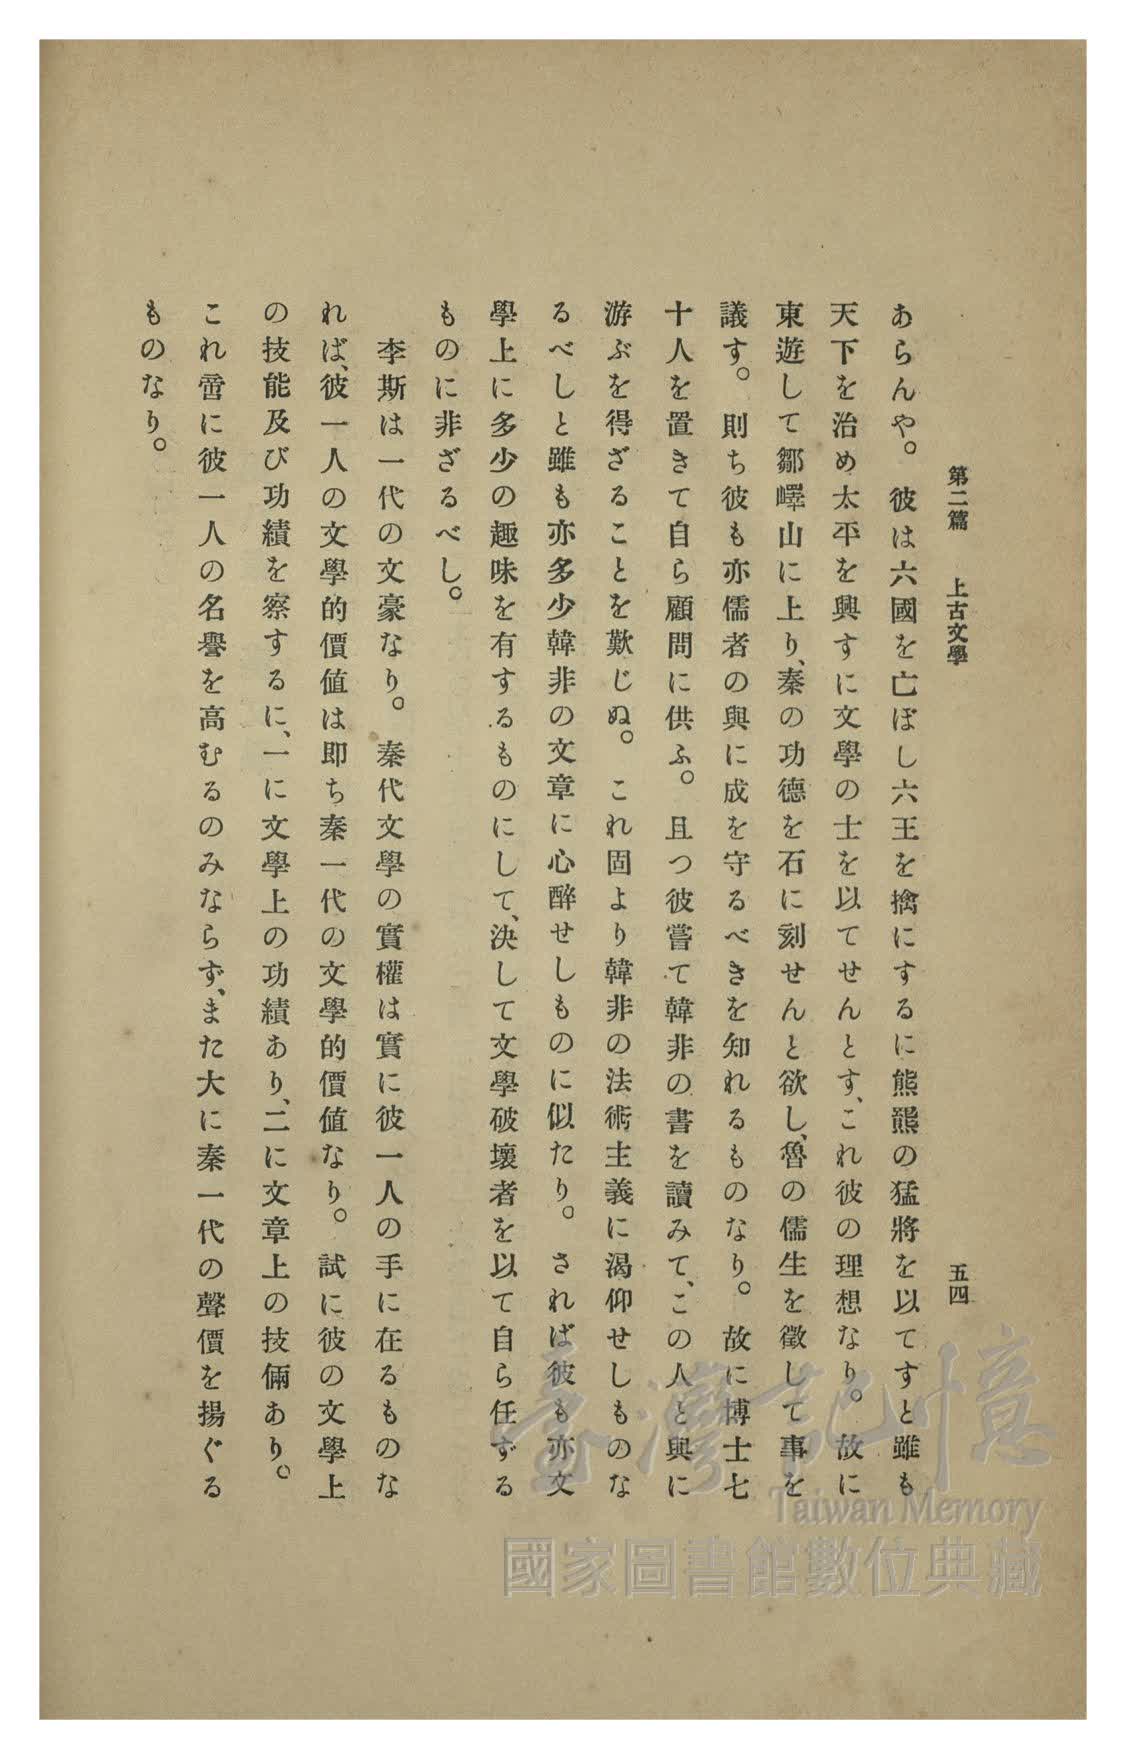 第二篇　上古文學　五四
あらんや。彼は六國を亡ぼし六王を擒にするに熊羆の猛將を以てすと雖も
天下を治め太平を興すに文學の士を以てせんとす、これ彼の理想なり。故に
東遊して鄒嶧山に上り、秦の功德を石に刻せんと欲し、魯の儒生を徵して事を
議す。則ち彼も亦儒者の與に成を守るべきを知れるものなり。故に博士七
十人を置きて自ら顧問に供ふ。且つ彼嘗て韓非の書を讀みて、この人と與に
游ぶを得ざることを歎じぬ。これ固より韓非の法術主義に渴仰せしものな
るべしと雖も亦多少韓非の文章に心醉せしものに似たり。されば彼も亦文
學上に多少の趣味を有するものにして、決して文學破壞者を以て自ら任ずる
ものに非ざるべし。
李斯は一代の文豪なり。秦代文學の實權は實に彼一人の手に在るものな
れば、彼一人の文學的價値は即ち秦一代の文學的價値なり。試に彼の文學上
の技能及び功績を察するに、一に文學上の功績あり、二に文章上の技倆あり。
これ啻に彼一人の名譽を高むるのみならず、また大に秦一代の聲價を揚ぐる
ものなり。
臺灣記憶
Taiwan Memory
國家圖書館數位典藏